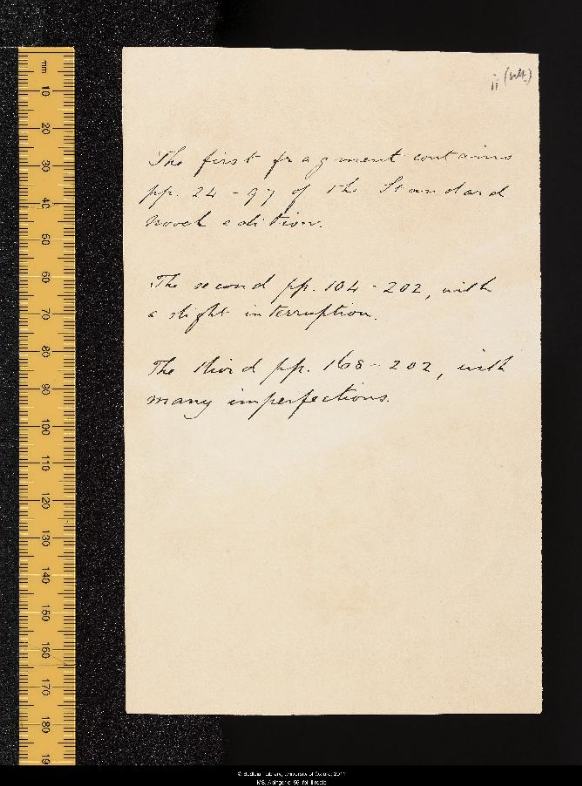 ii (vol.)
The first fragment contains
pp. 24 - 97 of the Standard
novel edition.
The second pp. 104 - 202, with
a slight interruption.
The third pp. 168 - 202, with
many imperfections.
mm
10
20
30
40
50
60
70
80
90
100
110
120
130
140
150
160
170
180